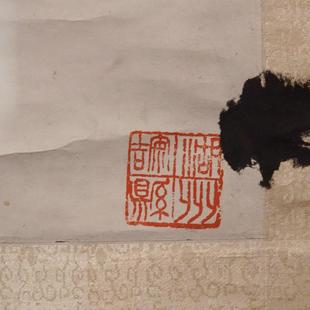 湖州
安吉縣